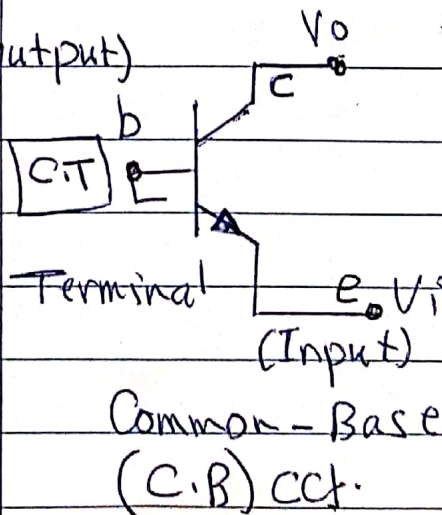 Vo
utput)
C
b
C.T
Terminal
e Vi
(Input)
Common-Base
(C.B) CCt.